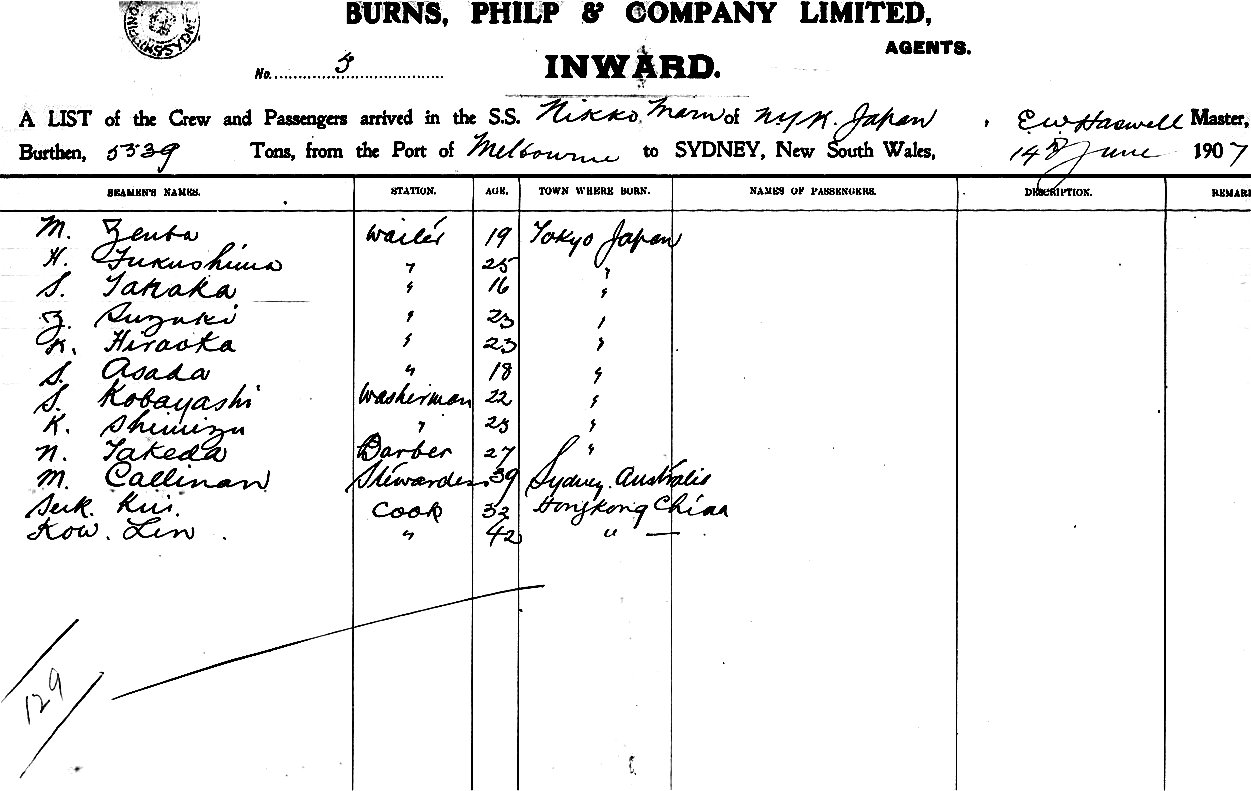 BURNS, PHILP & COMPANY LIMITED,
AGENTS.
No. 3
INWARD.
A LIST of the Crew and Passengers arrived in the S.S. Nikko Maru of NYK. Japan , E W Haswell Master,
Burthen, 5539 Tons, from the Port of Melbourne to SYDNEY, New South Wales, 14th June 1907
SEAMEN'S NAMES. STATION. AGE. TOWN WHERE BORN. NAMES OF PASSENGERS. DESCRIPTION. REMAR
M. Zenba waiter 19 Tokyo Japan
H. Fukushima " 25 "
S. Tanaka " 16 "
Z. Suzuki " 23 "
K. Hiraoka " 23 "
S. Asada " 18 "
S. Kobayashi Washerman 22 "
K. Shimizu " 23 "
N. Takeda Barber 27 "
M. Callinan Stewardess 39 Sydney. Australia
Kui. Cook 32 Hongkong China
Kow. Lin. " 42 " —
129